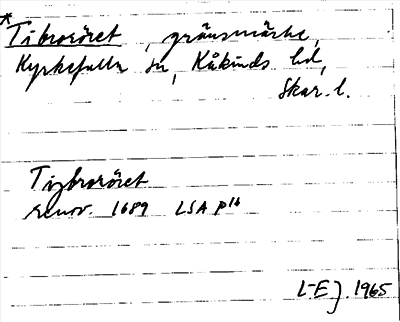 *Tibroröret, gränsmärke,
Kyrkefalla sn, Kåkinds hd,
Skar. l.
Tigbroröret
renov. 1689 LSA p16
L-EJ. 1965